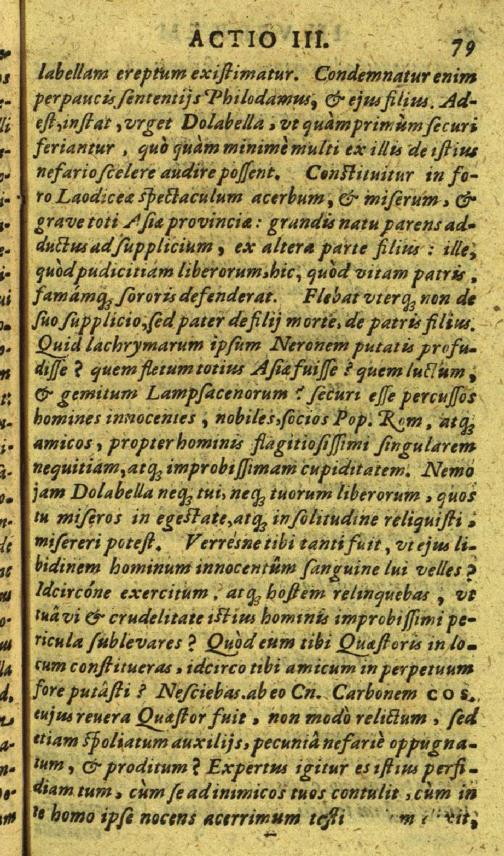 ACTIO III. 79
labellam ereptum existimatur. Condemnatur enim
perpaucis sententijs Philodamus, & ejus filius. Ad-
est, instat, vrget Dolabella, vt quàm primùm securi
feriantur, quò quàm minimè multi ex illis de istius
nefario scelere audire possent. Constituitur in fo-
ro Laodiceæ spectaculum acerbum, & miserum, &
grave toti Asiæ provinciæ: grandis natu parens ad-
ductus ad supplicium, ex altera parte filius: ille,
quòd pudicitiam liberorum, hic, quòd vitam patris,
famámq; sororis defenderat. Flebat vterq; non de
suo supplicio, sed pater de filij morte, de patris filius.
Quid lachrymarum ipsum Neronem putatis profu-
disse? quem fletum totius Asiæ fuisse? quem luctum,
& gemitum Lampsacenorum? securi esse percussos
homines innocentes, nobiles, socios Pop. Rom. atq;
amicos, propter hominis flagitiosissimi singularem
nequitiam, atq; improbissimam cupiditatem. Nemo
jam Dolabella neq; tui, neq; tuorum liberorum, quos
tu miseros in egestate, atq; in solitudine reliquisti,
misereri potest. Verresne tibi tanti fuit, vt ejus li-
bidinem hominum innocentûm sanguine lui velles?
Idcircóne exercitum, atq; hostem relinquebas, vt
tuâ vi & crudelitate istius hominis improbissimi pe-
ricula sublevares? Quòd eum tibi Quæstoris in lo-
cum constitueras, idcirco tibi amicum in perpetuum
fore putâsti? Nesciebas, ab eo Cn. Carbonem COS.
cujus revera Quæstor fuit, non modò relictum, sed
etiam spoliatum auxilijs, pecuniâ nefariè oppugna-
tum, & proditum? Expertus igitur es istius perfi-
diam tum, cùm se ad inimicos tuos contulit, cùm in
te homo ipse nocens acerrimum testi